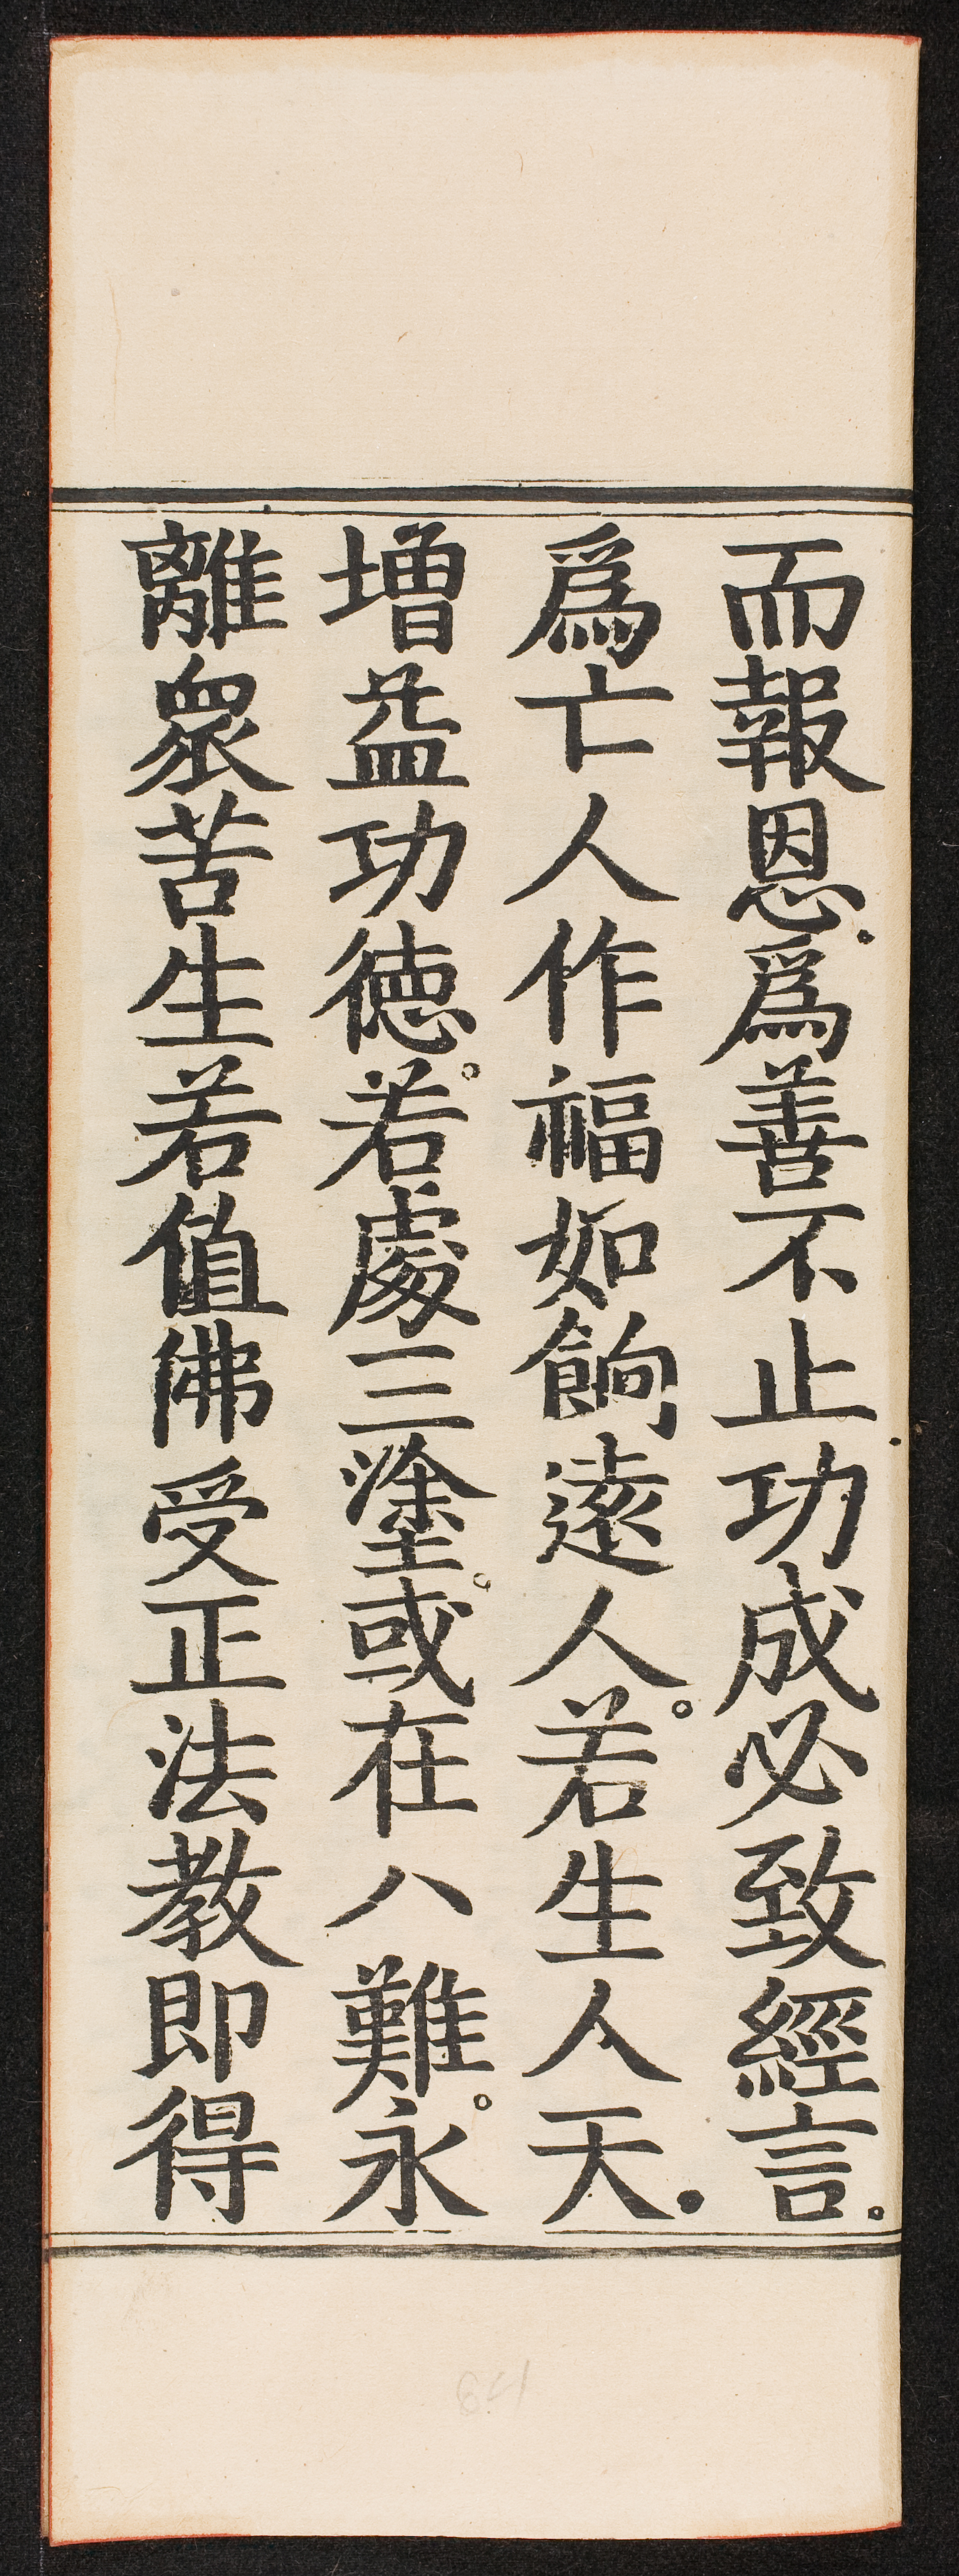 而報恩爲善不止功成必致經言。
爲亡人作福如餉遠人。若生人天
增益功德。若處三塗。或在八難。永
離衆苦生若值佛受正法教即得